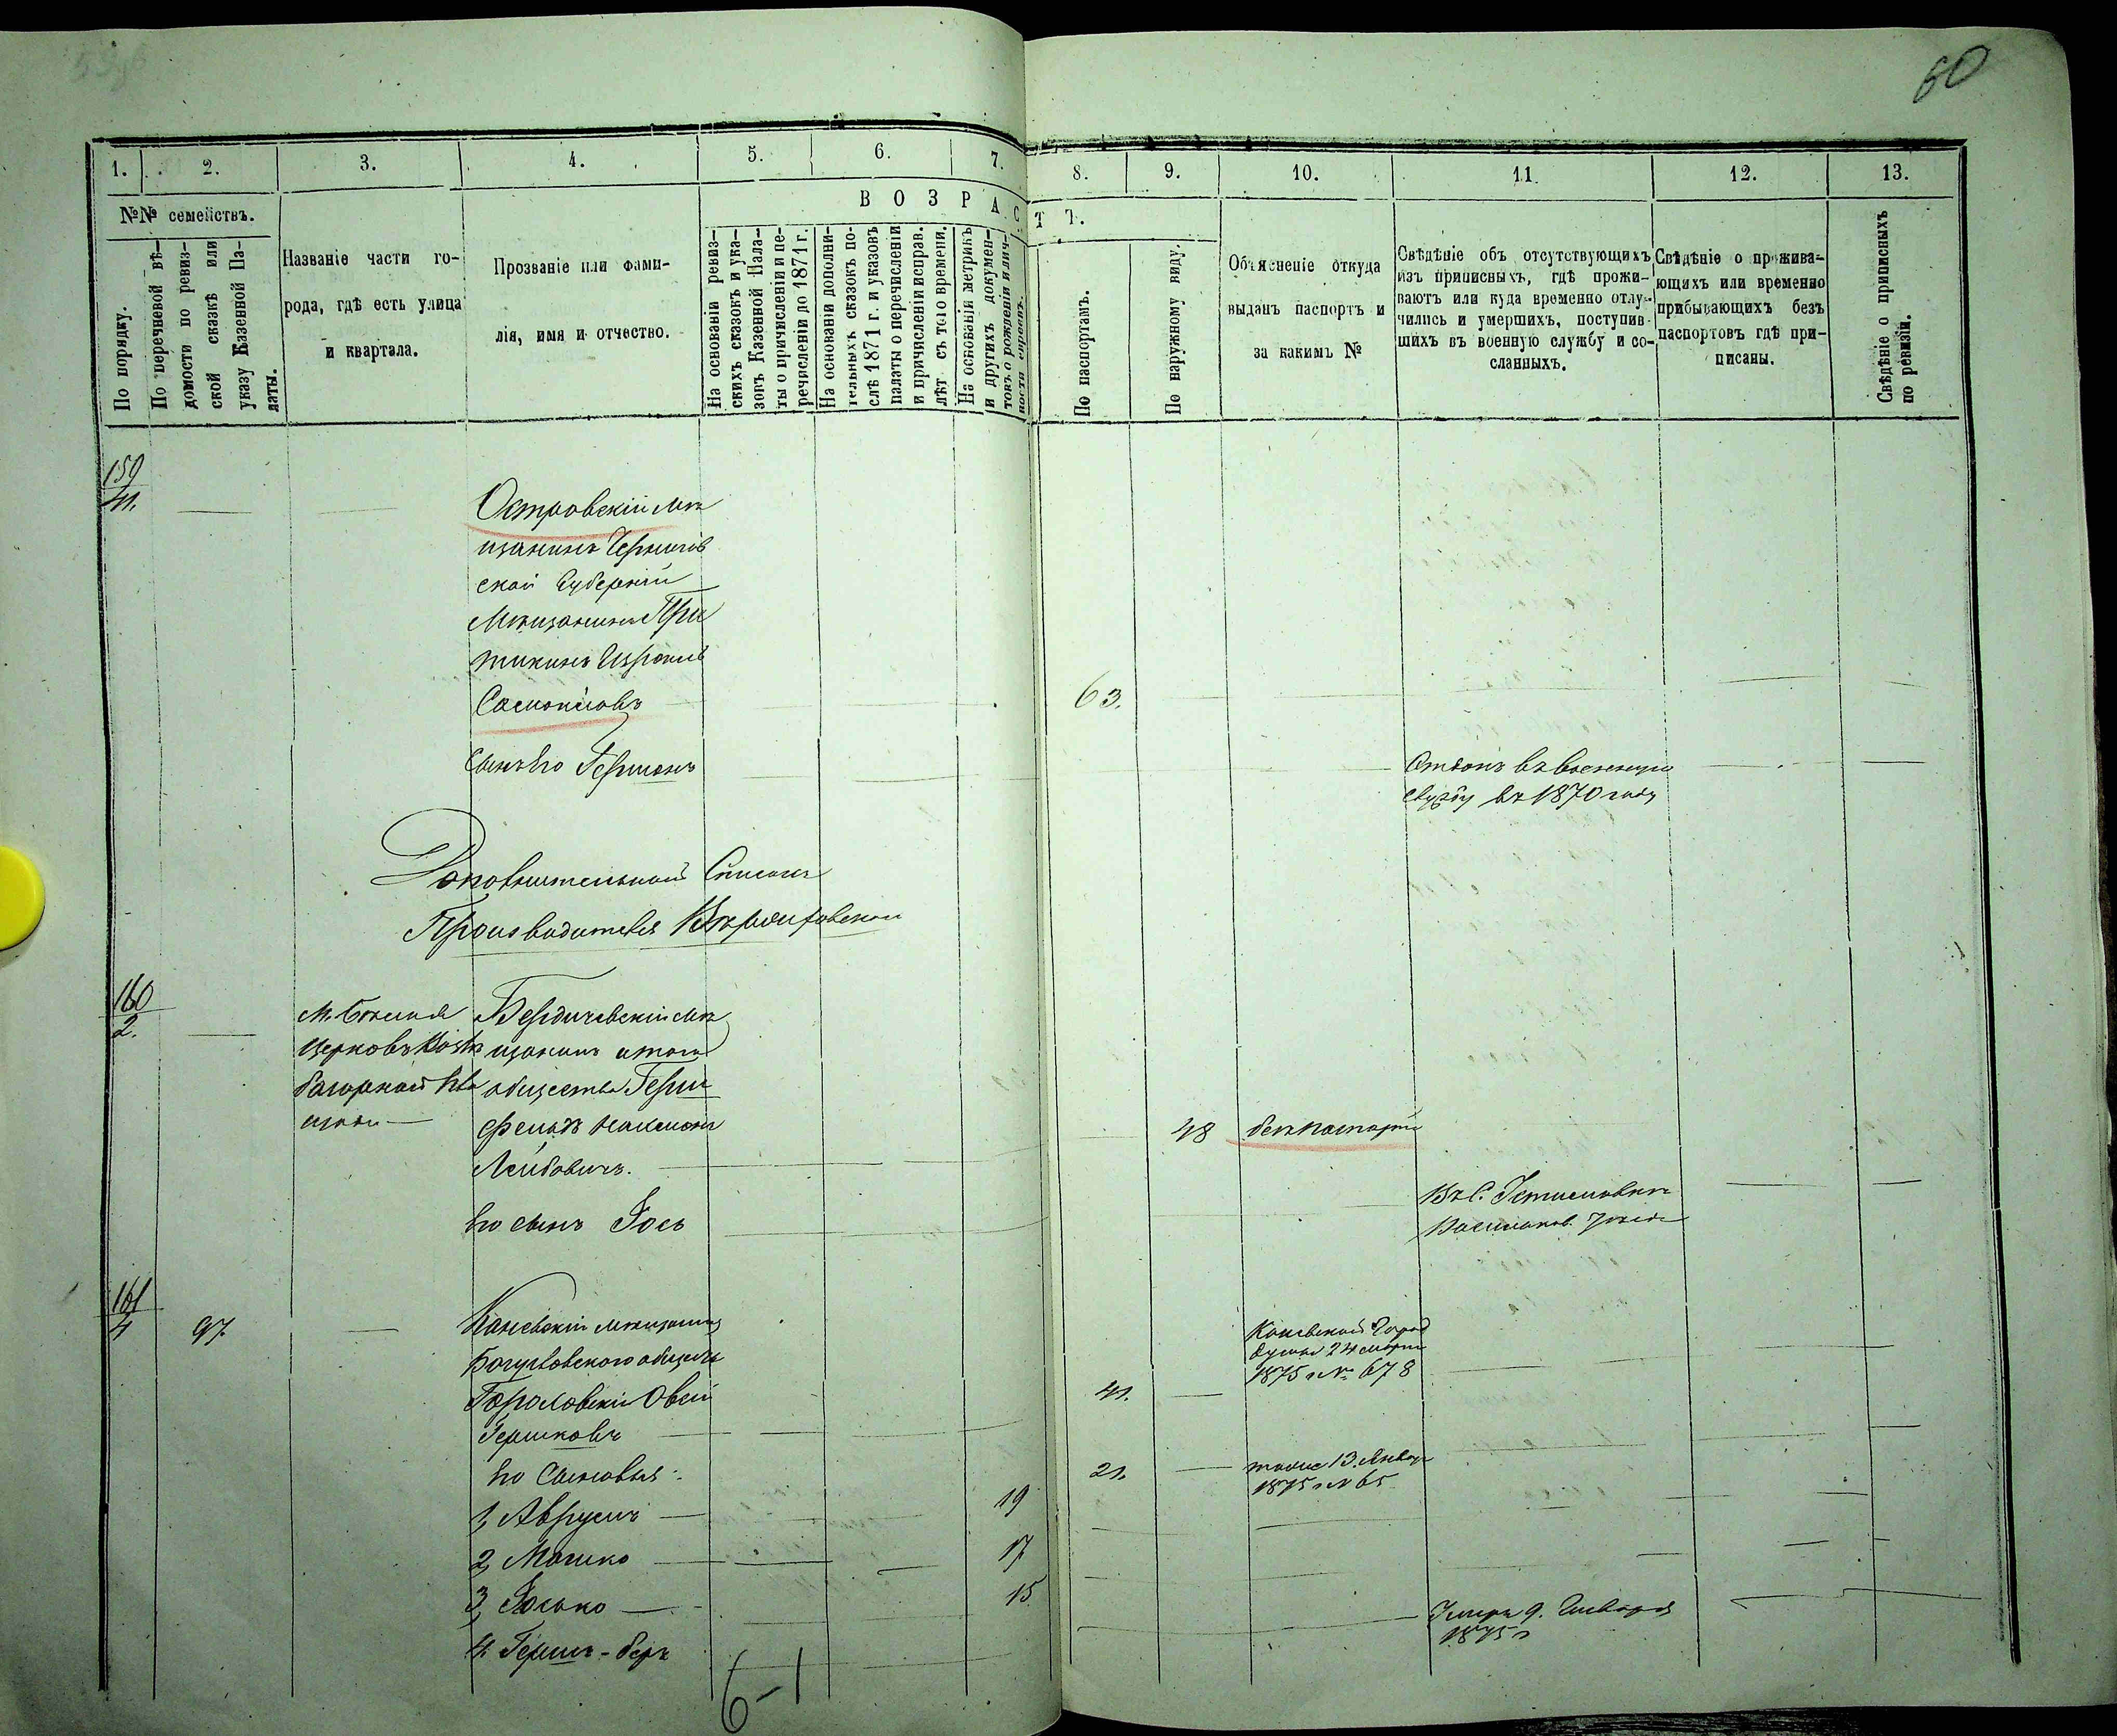 60
1. 2. 3. 4. 5. 6. 7. 8. 9. 10. 11. 12. 13.
№№ семействъ.
По порядку.
По перечневой вѣ-
домости по ревиз-
ской сказкѣ или
указу Казенной Па-
латы.
Названіе части го-
рода, гдѣ есть улица
и квартала.
Прозваніе или фами-
лія, имя и отчество.
ВОЗРАСТЪ.
На основаніи ревиз-
скихъ сказокъ и ука-
зовъ Казенной Пала-
ты о причисленіи и пе-
речисленіи до 1871 г.
На основаніи дополни-
тельныхъ сказокъ по-
слѣ 1871 г. и указовъ
палаты о перечисленіи
и причисленіи исправ.
лѣт съ того времени.
На основаніи метрикъ
и другихъ докумен-
товъ о рожденіи и лич-
ности евреевъ.
По паспортамъ.
По наружному виду.
Объясненіе откуда
выданъ паспортъ и
за какимъ №
Свѣдѣніе объ отсутствующихъ
изъ приписныхъ, гдѣ прожи-
ваютъ или куда временно отлу-
чились и умершихъ, поступив-
шихъ въ военную службу и со-
сланныхъ.
Свѣдѣніе о прожива-
ющихъ или временно
прибывающихъ безъ
паспортовъ гдѣ при-
писаны.
Свѣдѣніе о приписныхъ
по ревизіи.
159
Островскій мѣ
щанинъ Чернигов
ской Губерніи
Мѣщанинъ
63.
сынъ его Гершонъ
Отданъ въ военную
службу въ 1870 году
Дополнительный Списокъ
Производителя
160
2.
М. Бѣлая Бердичевскій мѣ
Церковь щанинъ
общества Герш
фельдъ
48
безъ паспорта
Лейбовичъ.
Въ С.
Васильков. уѣзда
его сынъ Іось
161
4
97
Каневскій мѣщанинъ
Богуславского общества
Овсій
Гершковъ
41.
Каневской Город
думы 24 марта
1875 г № 678
его Сыновья:
21.
тоже 13 Января
1875 г № 65
1, Аврумъ 19
2, Мошко 17
3, Іосько 15
4 Гершъ-беръ
Умеръ 9. Января
1875 г
6-1